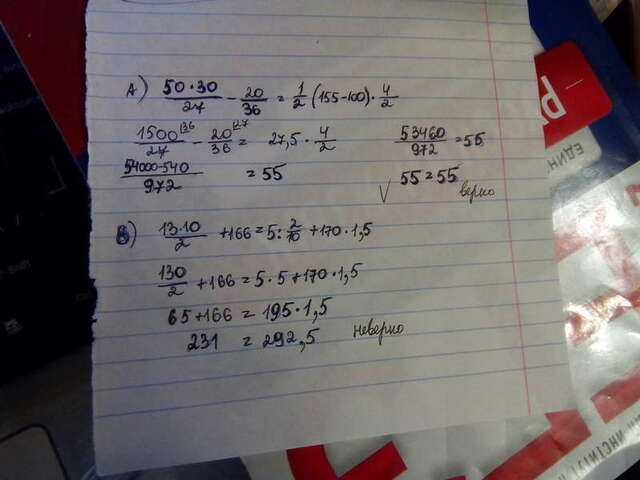 А) 50·30/27 - 20/36 = 1/2 (155-100)·4/2
1500^(36/27 - 20^(27/36 = 27,5·4/2 53460/972 = 55
54000-540/972 = 55 55 = 55 верно
В) 13·10/2 +166 = 5:2/10 +170·1,5
130/2 +166 = 5·5+170·1,5
65+166 = 195·1,5
231 = 292,5 неверно
ЕДИН